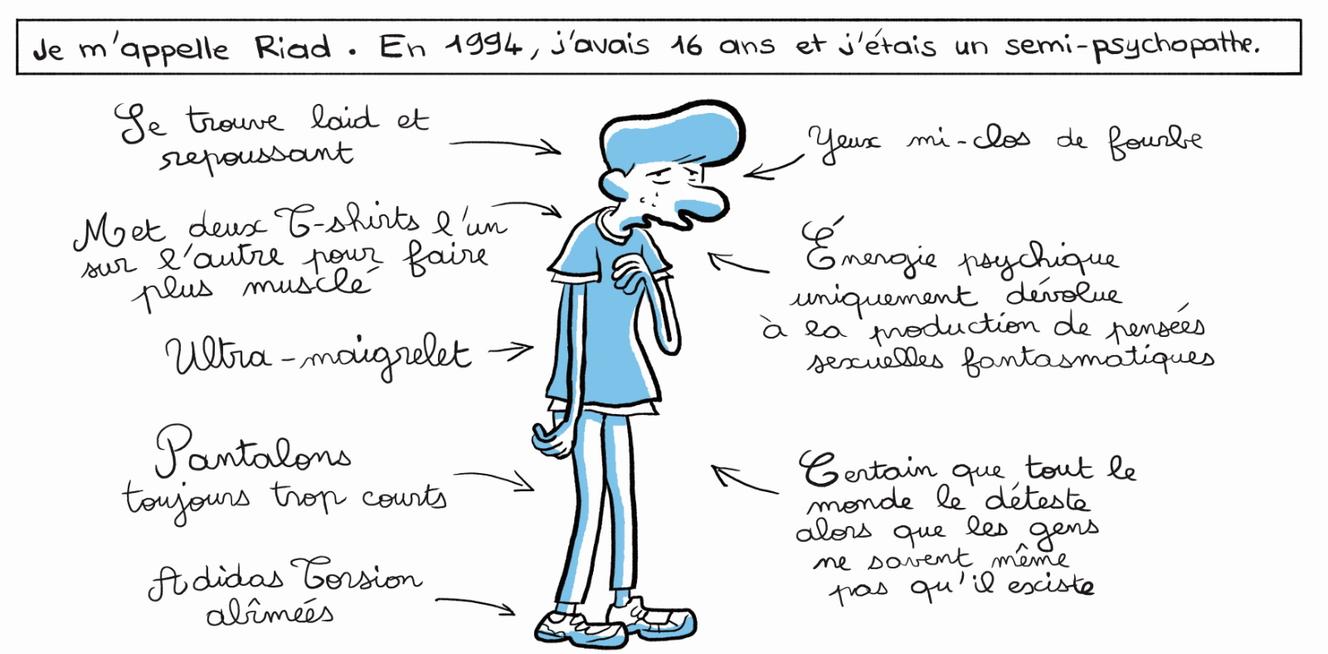 Je m'appelle Riad. En 1994, j'avais 16 ans et j'étais un semi-psychopathe.
Se trouve laid et
repoussant
Met deux T-shirts l'un
sur l'autre pour faire
plus musclé
Ultra-maigrelet
Pantalons
toujours trop courts
Adidas Torsion
abîmées
Yeux mi-clos de fourbe
Énergie psychique
uniquement dévolue
à la production de pensées
sexuelles fantasmatiques
Certain que tout le
monde le déteste
alors que les gens
ne savent même
pas qu'il existe